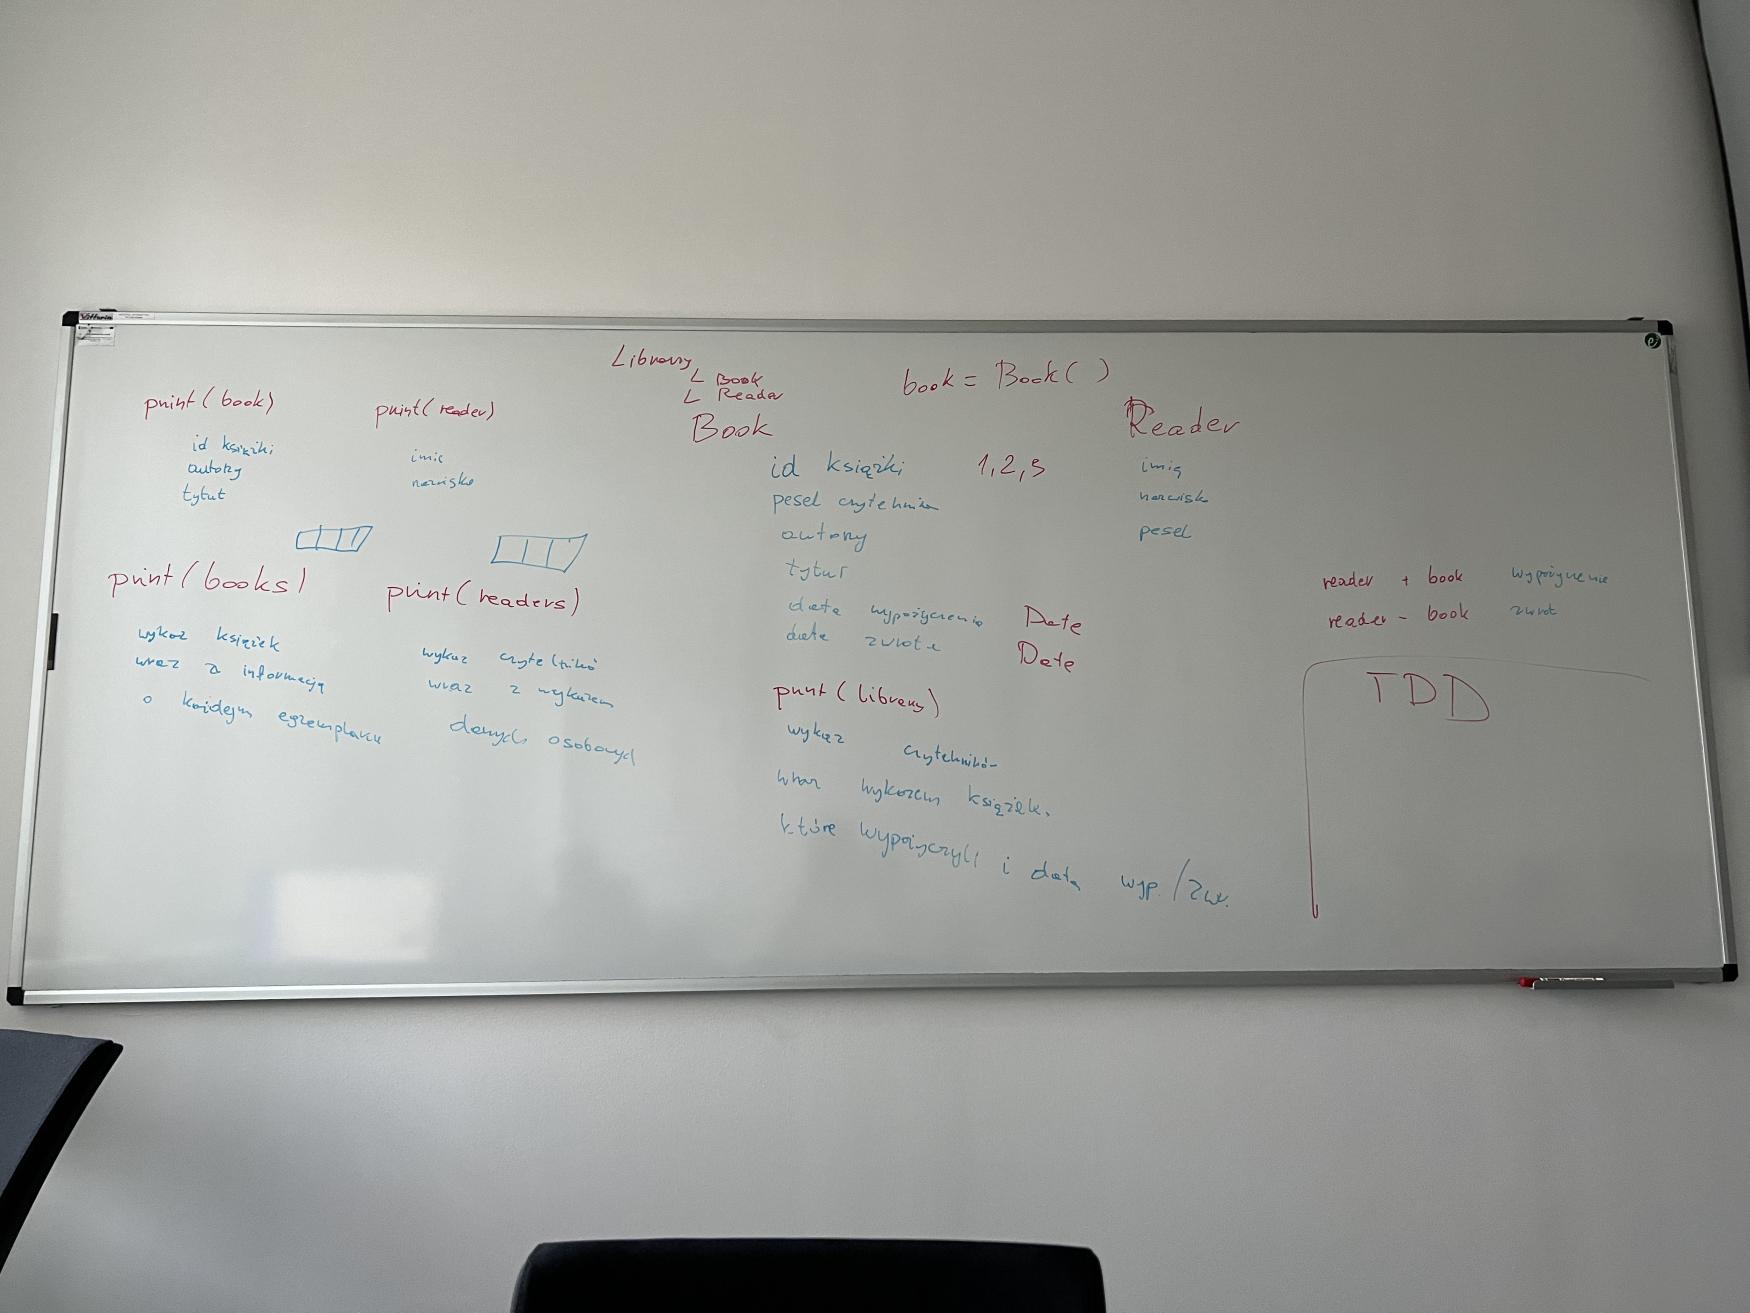 Vittoria
Library
L Book
L Reader
book = Book( )
print(book)
id książki
autorzy
tytuł
print(reader)
imię
nazwisko
print(books)
wykaz książek
wraz z informacją
o każdym egzemplarzu
print(readers)
wykaz czytelnikó
wraz z wykazem
danych osobowych
Book
id książki 1, 2, 3
pesel czytelnika
autorzy
tytuł
data wypożyczenia Date
data zwrotu Date
print(library)
wykaz czytelników
wraz wykazem książek,
które wypożyczyli i data wyp. / zw.
Reader
imię
nazwisk
pesel
reader + book wypożyczenie
reader - book zwrot
TDD